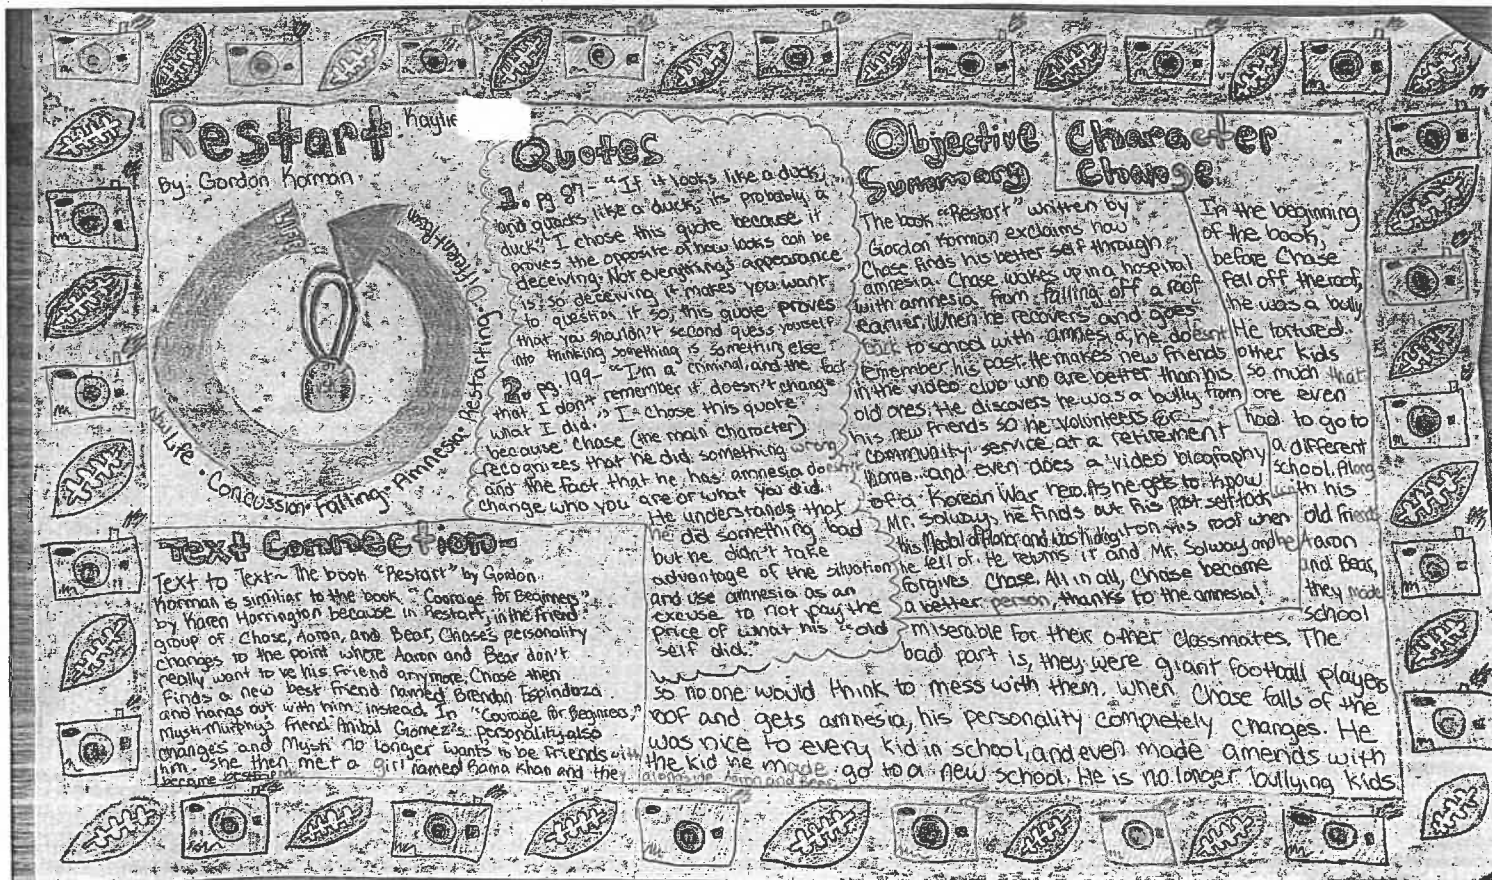 Restart
Kaylie
By: Gordon Korman
Different Person
New Life • Concussion • Falling • Amnesia • Restarting
Quotes
1. pg 87 - "If it looks like a duck,
and quacks like a duck, its probably a
duck." I chose this quote because it
proves the opposite of how looks can be
deceiving. Not everything's appearance
is so deceiving it makes you want
to question it so, this quote proves
that you shouldn't second guess yourself
into thinking something is something else
2. pg. 199 - "I'm a criminal, and the fact
that I don't remember it doesn't change
what I did." I chose this quote
because Chase (the main character)
recognizes that he did something wrong
and the fact that he has amnesia doesn't
change who you are or what you did.
He understands that
he did something bad
but he didn't take
advantage of the situation
and use amnesia as an
excuse to not pay the
price of what his "old
self did."
Objective
Summary
The book "Restart" written by
Gordon Korman exclaims how
Chase finds his better self through
amnesia. Chase wakes up in a hospital
with amnesia from falling off a roof
earlier. When he recovers and goes
back to school with amnesia, he doesnt
remember his past. He makes new friends
in the video club who are better than his
old ones. He discovers he was a bully from
his new friends so he volunteers for
community service at a retirement
home and even does a video biography
of a Korean War hero. As he gets to know
Mr. Solway, he finds out his past self took
his Medal of Honor and was hiding it on his roof when
he fell of. He returns it and Mr. Solway
forgives Chase. All in all, Chase became
a better person, thanks to the amnesia!
Character
Change
In the beginning
of the book,
before Chase
fell off the roof,
he was a bully.
He tortured
other kids
so much that
one even
had to go to
a different
school. Along
with his
old friends
Aaron
and Bear,
they made
school
miserable for their other classmates. The
bad part is, they were giant football players
so no one would think to mess with them. When Chase falls of the
roof and gets amnesia, his personality completely changes. He
was nice to every kid in school, and even made amends with
the kid he made go to a new school. He is no longer bullying kids
alongside Aaron and Bear
Text Connection-
Text to Text~ The book "Restart" by Gordon
Korman is similiar to the book "Courage for Beginners"
by Karen Harrington because in Restart, in the friend
group of Chase, Aaron, and Bear, Chase's personality
changes to the point where Aaron and Bear don't
really want to be his friend anymore. Chase then
finds a new best friend named Brendan Espinoza
and hangs out with him instead. In "Courage for Beginners,"
Mysti Murphy's friend Anibal Gomez's personality also
changes and Mysti no longer wants to be friends with
him. She then met a girl named Rama Khan and they
became best friends